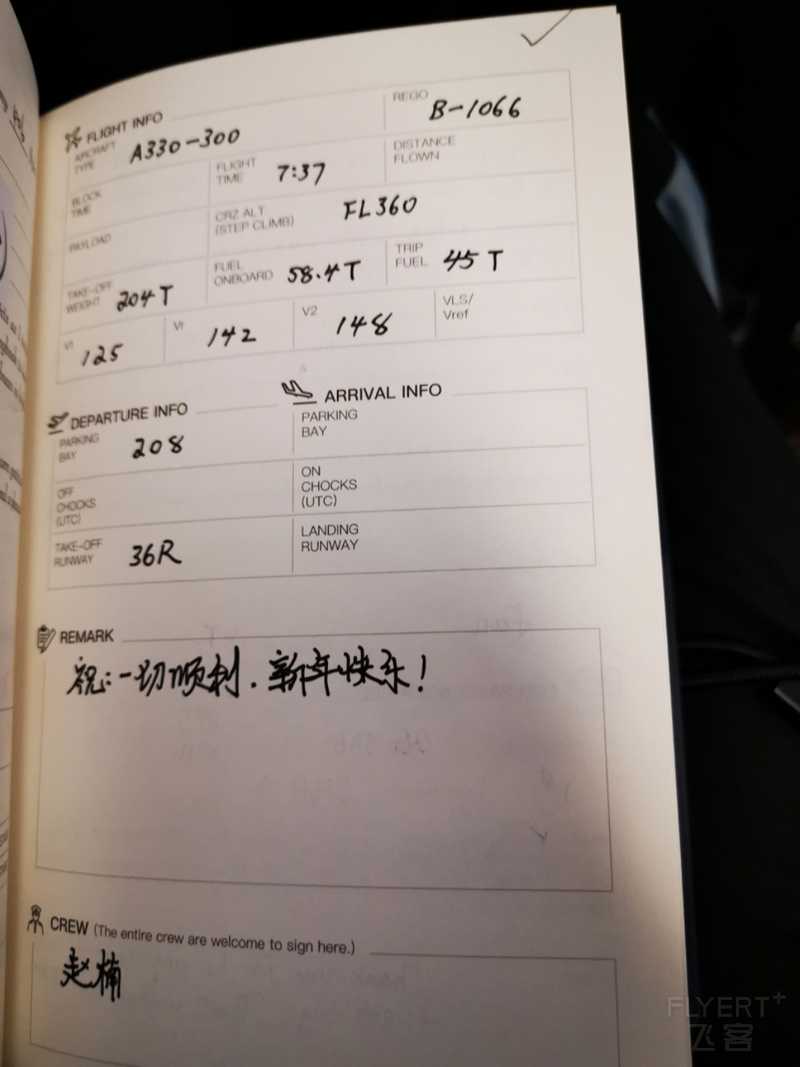 FLIGHT INFO
AIRCRAFT TYPE A330-300 REGO B-1066
BLOCK TIME FLIGHT TIME 7:37 DISTANCE FLOWN
PAYLOAD CRZ ALT (STEP CLIMB) FL360
TAKE-OFF WEIGHT 204T FUEL ONBOARD 58.4T TRIP FUEL 45T
V1 125 Vr 142 V2 148 VLS/ Vref
DEPARTURE INFO ARRIVAL INFO
PARKING BAY 208 PARKING BAY
OFF CHOCKS (UTC) ON CHOCKS (UTC)
TAKE-OFF RUNWAY 36R LANDING RUNWAY
REMARK
祝:一切顺利.新年快乐!
CREW (The entire crew are welcome to sign here.)
赵楠
FLYERT+
飞客